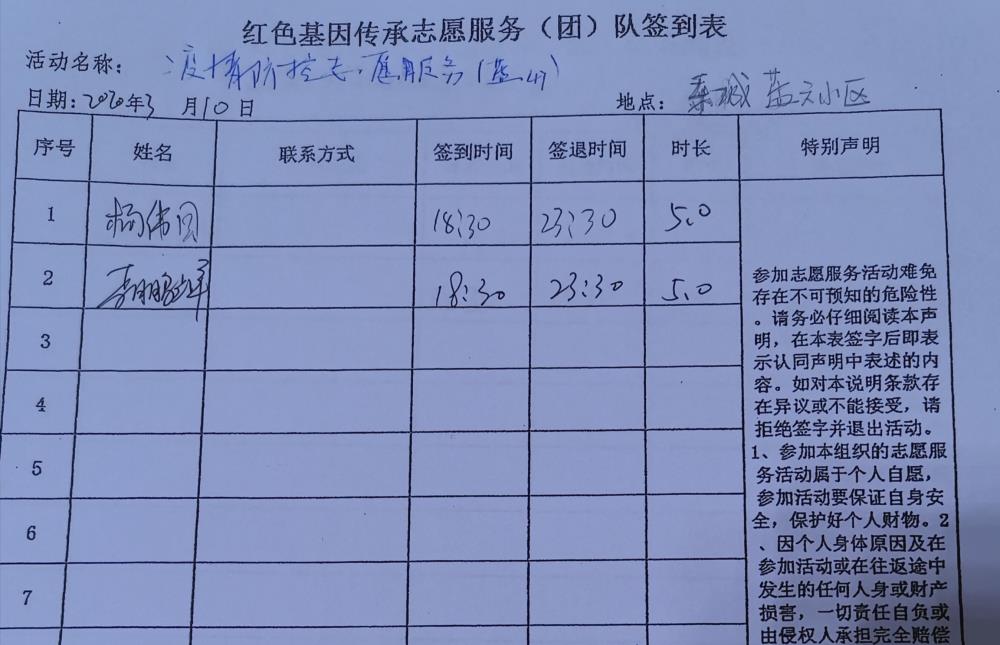 红色基因传承志愿服务（团）队签到表
活动名称：疫情防控志愿服务
日期：2020年3月10日 地点：小区
序号 姓名 联系方式 签到时间 签退时间 时长 特别声明
1 杨伟 18:30 23:30 5.0
2 18:30 23:30 5.0
3
4
5
6
7
参加志愿服务活动难免
存在不可预知的危险性
。请务必仔细阅读本声
明，在本表签字后即表
示认同声明中表述的内
容。如对本说明条款存
在异议或不能接受，请
拒绝签字并退出活动。
1、参加本组织的志愿服
务活动属于个人自愿，
参加活动要保证自身安
全，保护好个人财物。2
、因个人身体原因及在
参加活动或在往返途中
发生的任何人身或财产
损害，一切责任自负或
由侵权人承担完全赔偿